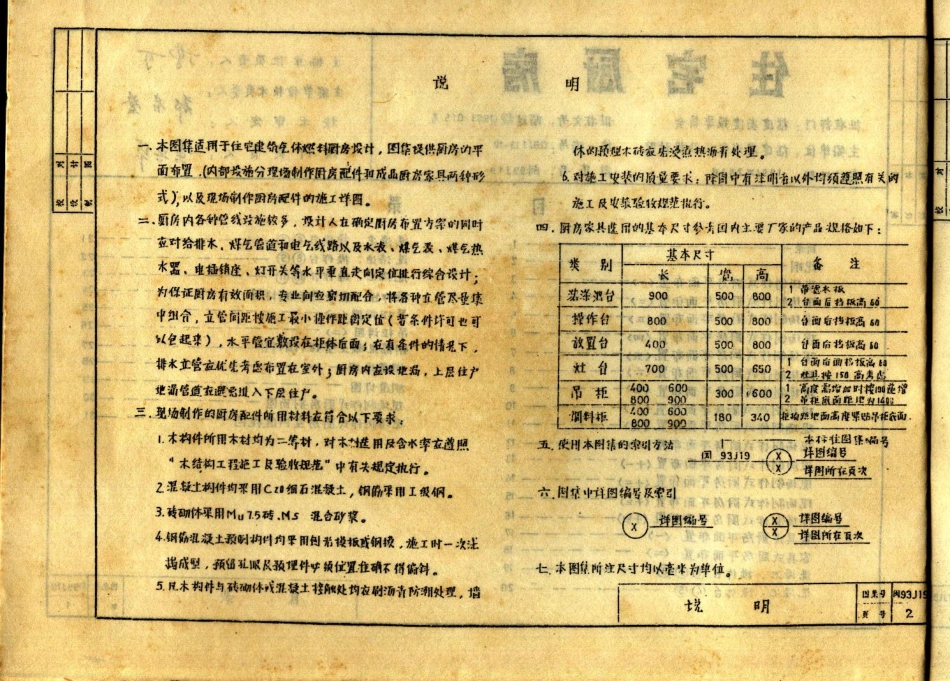 说 明
一、本图集适用于住宅建筑气体燃料厨房设计，图集提供厨房的平
面布置，(内部设施分现场制作厨房配件和成品厨房家具两种形
式)，以及现场制作厨房配件的施工详图。
二、厨房内各种管线设施较多，设计人在确定厨房布置方案的同时
应对给排水、煤气管道和电气线路以及水表、煤气表、煤气热
水器、电插销座、灯开关等水平垂直走向定位进行综合设计；
为保证厨房有效面积，专业间应密切配合，将各种立管尽量集
中组合，立管间距按施工最小操作距离定位(若条件许可也可
以包起来)，水平管宜敷设在柜体后面；在有条件的情况下，
排水立管应优先考虑布置在室外；厨房内应设地漏，上层住户
地漏管道应避免进入下层住户。
三、现场制作的厨房配件所用材料应符合以下要求：
1.木构件所用木材均为二等材，对木材选用及含水率应遵照
“木结构工程施工及验收规范”中有关规定执行。
2.混凝土构件均采用C20细石混凝土，钢筋采用I级钢。
3.砖砌体采用Mu7.5砖、M5 混合砂浆。
4.钢筋混凝土预制构件均采用刨光模板或钢模，施工时一次浇
捣成型，预留孔眼及预埋件必须位置准确不得偏斜。
5.凡木构件与砖砌体或混凝土接触处均应刷沥青防潮处理，墙
体的预埋木砖应先浸热沥青处理。
6.对施工安装的质量要求：除图中有注明者以外均须遵照有关的
施工及安装验收规范执行。
四、厨房家具选用的基本尺寸参考国内主要厂家的产品规格如下：
类 别 基本尺寸 备 注
长 宽 高
洗涤池台 900 500 800 1 带沥水板 2 台面后挡板高60
操作台 800 500 800 台面后挡板高60
放置台 400 500 800 台面后挡板高60
灶台 700 500 650 1 台面后面挡板高60 2 灶具按150高考虑
吊柜 400 600 800 900 300 600 1 高度需增加时按100递增 2 吊柜底面距地为1400
调料柜 400 600 800 900 180 340 柜角距地面高度紧贴吊柜底面
五、使用本图集的索引方法 闽93J19 X X 本标准图集编号 详图编号 详图所在页次
六、图集中详图编号及索引
X 详图编号 X X 详图编号 详图所在页次
七、本图集所注尺寸均以毫米为单位。
说 明 图集号 闽93J19
页号 2